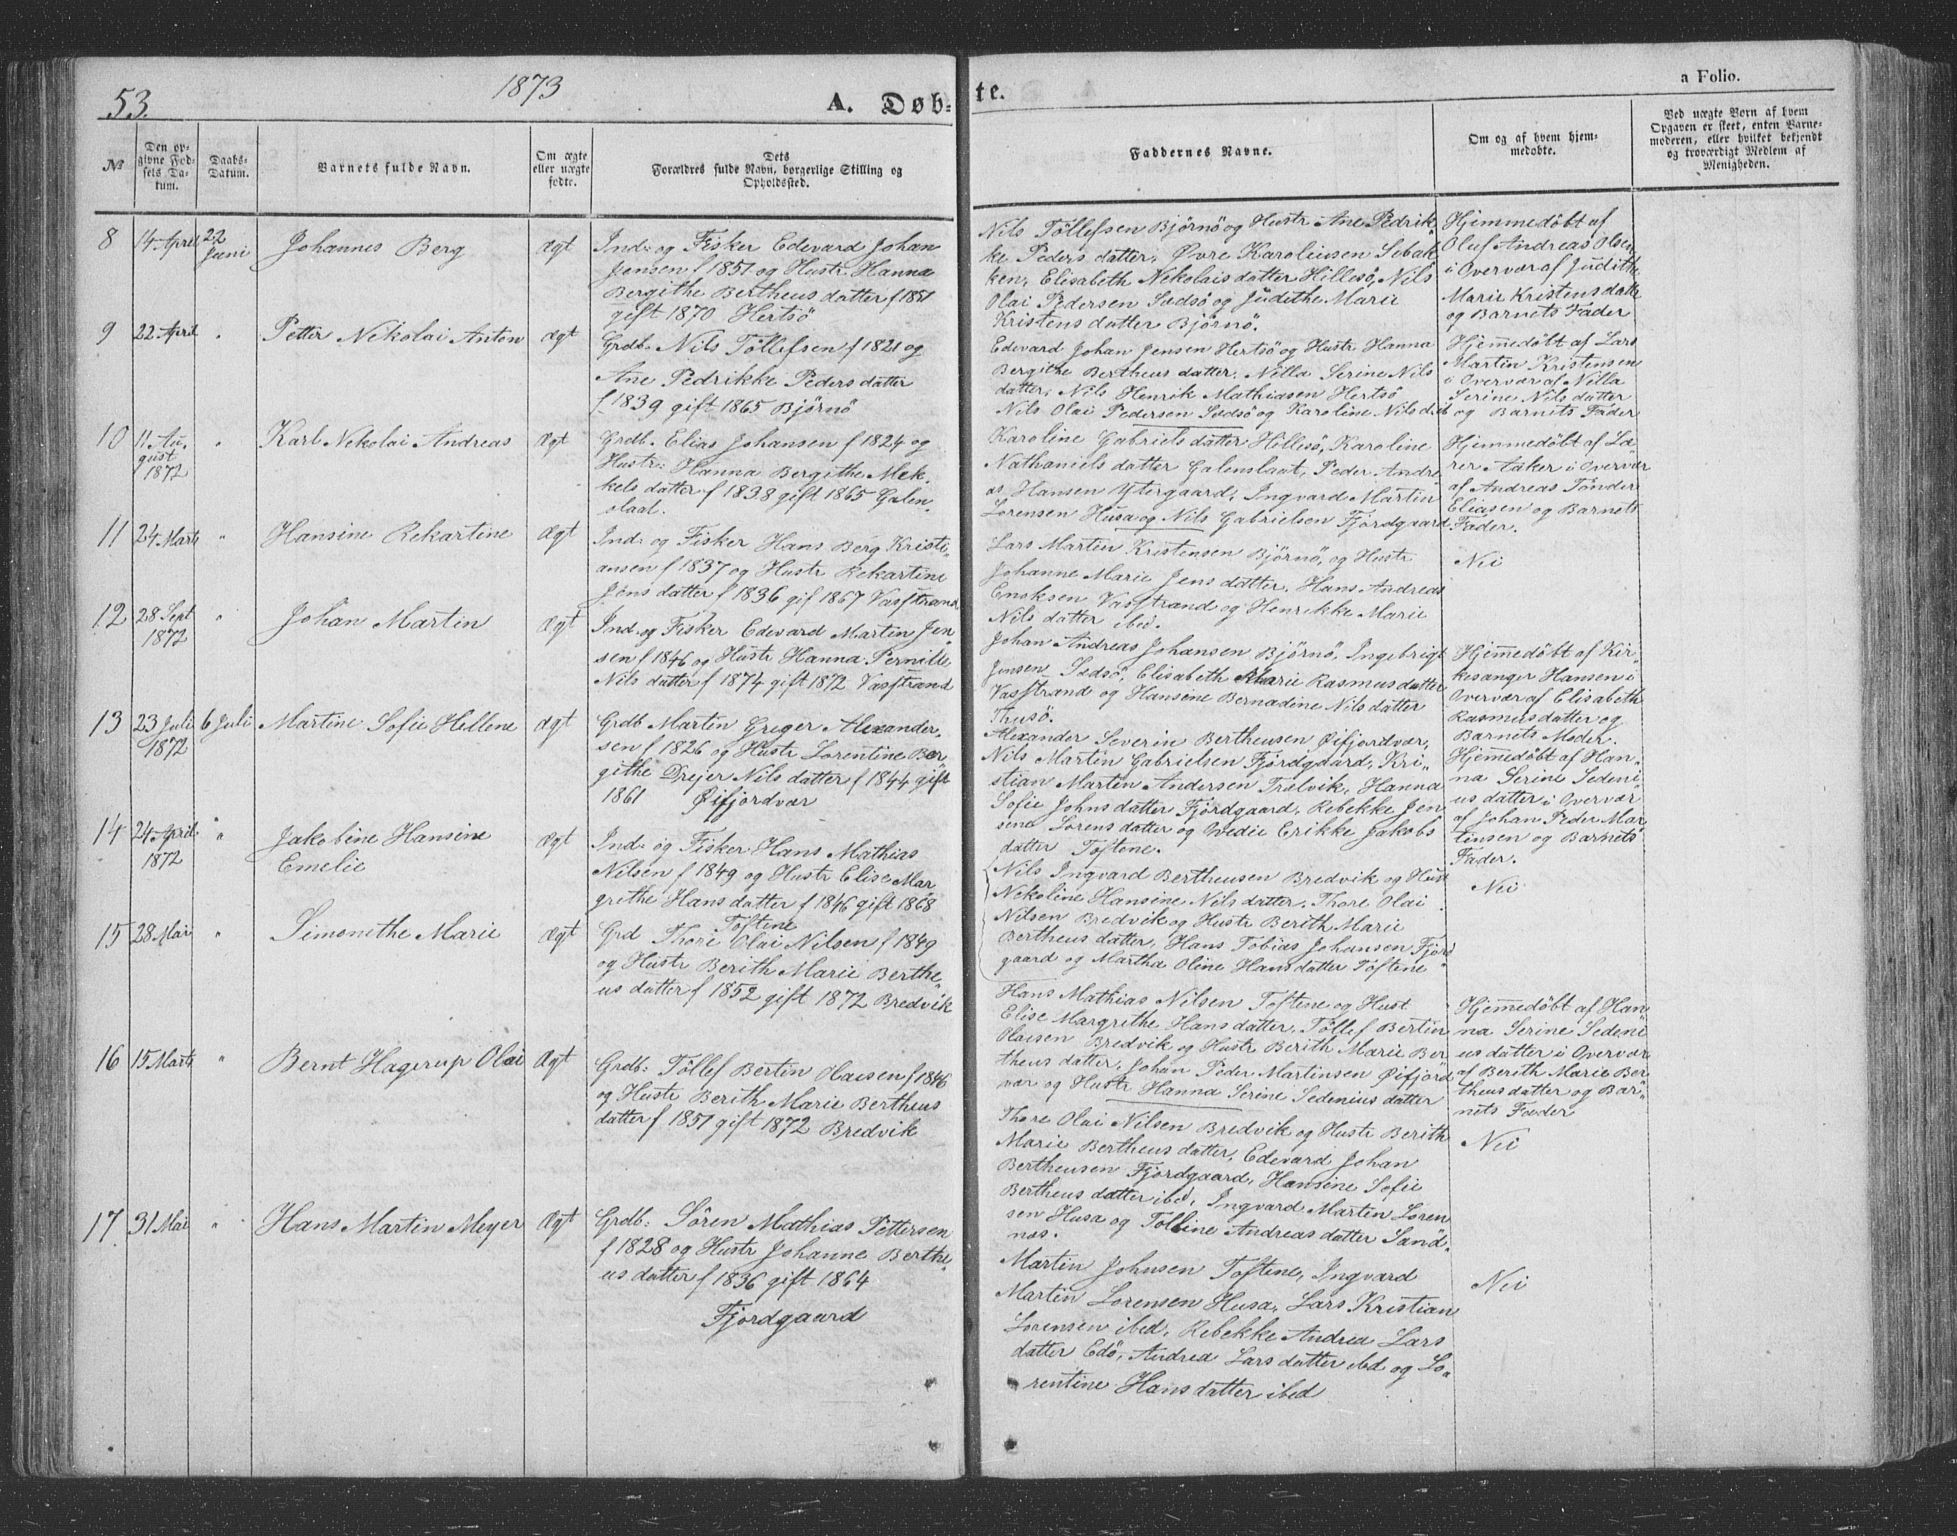 53.
1873
A. Døb-
te.
a Folio.
№
Den op-
givne Fød-
sels Da-
tum.
Daabs-
Datum.
Barnets fulde Navn.
Om ægte
eller uægte
fødte.
Dets
Forældres fulde Navn, borgerlige Stilling og
Opholdssted.
Faddernes Navne.
Om og af hvem hjem-
medøbte.
Ved uægte Børn af hvem
Opgaven er skeet, enten Barne-
moderen, eller hvilket bekjendt
og troværdigt Medlem af
Menigheden.
8
14 April
22
Juni
Johannes Berg
ægt
Ind. og Fisker Edevard Johan
Jensen f 1851 og Hustr Hanna
Bergithe Bertheus datter f 1851
gift 1870 Hertsö
Nils Töllefsen Björnö og Hustr Ane Pedrik-
ke Peders datter, Övre Karolinsen Sebak-
ken, Elisabeth Nekolais datter Hillesö, Nils
Olai Pedersen Sødsö og Judithe Marie
Kristens datter Björnö.
Hjemmedöbt af
Oluf Andreas Olsen
i Overvær af Judithe
Marie Kristens datte
og Barnets Fader
9
22 April
"
Petter Nekolai Anton
ægt
Grdb. Nils Töllefsen f 1821 og
Ane Pedrikke Peders datter
f 1839 gift 1865 Björnö
Edevard Johan Jensen Hertsö og Hustr Hanna
Bergithe Bertheus datter, Nilla Serine Nils
datter, Nils Henrik Mathiasen Hertsö
Nils Olai Pedersen Sødsö og Karoline Nilsd. ib
Hjemmedöbt af Lars
Martin Kristensen
i Overvær af Nilla
Serine Nils datter
og Barnets Fader
10
11 Au-
gust
1872
"
Karl Nekolai Andreas
ægt
Grdb. Elias Johansen f 1824 og
Hustr: Hanna Bergithe Mek-
kels datter f 1838 gift 1865 Galen-
slaat.
Karoline Gabriels datter Hillesö, Karoline
Nathaniels datter Galenslaat, Peder Andre
as Hansen Ytergaard, Ingvard Martin
Lorensen Husa og Nils Gabrielsen Fjordgaard
Hjemmedöbt af Læ-
rer Aaker i Overvær
af Andreas Tönder
Eliasen og Barnets
Fader.
11
24 Marts
"
Hansine Rekartine
ægt
Ind: og Fisker Hans Berg Kristi-
ansen f 1837 og Hustr Rekartine
Jens datter f 1836 gif 1867 Vasstrand
Lars Martin Kristensen Björnö, og Hustr
Johanne Marie Jens datter, Hans Andreas
Enoksen Vasstrand og Henrikke Marie
Nils datter ibid.
Nei
12
28 Sept
1872
"
Johan Martin
ægt
Ind. og Fisker Edevard Martin Jen-
sen f 1846 og Hustr Hanna Pernille
Nils datter f 1874 gift 1872 Vasstrand
Johan Andreas Johansen Björnö, Ingebrigt
Jensen Sødsö, Elisabeth Marie Rasmus datter
Vasstrand og Hansene Bernadine Nils datter
Thusö.
Hjemmedöbt af Kir-
kesanger Hansen i
Overvær af Elisabeth
Rasmus datter og
Barnets Moder.
13
23 Juli
1872
6 Juli
Martine Sofie Hellene
ægt
Grdb Martin Greger Alexander-
sen f 1826 og Hustr Lorentine Ber
githe Drejer Nils datter f 1844 gift
1861 Öifjordvær
Alexander Severin Bertheusen Öifjordvær,
Nils Martin Gabrielsen Fjordgaard, Kri-
stian Martin Andersen Trælvik, Hanna
Sofie Johns datter Fjordgaard, Rebekke Jen
sine Lorens datter og Vedie Erikke Jakobs
datter Toftene.
Hjemmedöbt af Han-
na Serine Sedeni
us datter i Overvær
af Johan Peder Mar
tinsen og Barnets
Fader.
14
24 April
1872
"
Jakobine Hansine
Emelie
ægt
Ind. og Fisker Hans Mathias
Nilsen f 1849 og Hustr Elise Mar
grethe Hans datter f 1846 gift 1868
Toftene
Nils Ingvard Bertheusen Bredvik og Hust
Nekoline Hansine Nils datter, Thore Olai
Nilsen Bredvik og Hustr Berith Marie
Bertheus datter, Hans Tobias Johansen Fjord
gaard og Martha Oline Hans datter Toftene
Nei
15
28 Mai
"
Simonethe Marie
ægt
Grd Thore Olai Nilsen f 1849
og Hustr Berith Marie Berthe-
us datter f 1852 gift 1872 Bredvik
Hans Mathias Nilsen Toftene og Hust
Elise Margrethe Hans datter, Töllef Bertin
Olaisen Bredvik og Hustr Berith Marie Ber
theus datter, Johan Peder Martinsen Öifjord
vær og Hustr Hanna Serine Sedenius datter
Hjemmedöbt af Han-
na Serine Sedeni
us datter i Overvær
af Berith Marie Ber
theus datter og Bar-
nets Fader
16
15 Marts
"
Bernt Hagerup Olai
ægt
Grdb: Töllef Bertin Olaisen f 1846
og Hustr Berith Marie Bertheus
datter f 1851 gift 1872 Bredvik
Thore Olai Nilsen Bredvik og Hustr Berith
Marie Bertheus datter, Edevard Johan
Bertheusen Fjordgaard, Hansine Sofie
Bertheus datter ibid, Ingvard Martin Loren
sen Husa og Tolline Andreas datter Sand-
næs.
Nei
17
31 Mai
"
Hans Martin Meyer
ægt
Grdb: Sören Mathias Pettersen
f 1828 og Hustr Johanne Berthe-
us datter f 1836 gift 1864
Fjordgaard
Martin Johnsen Toftene, Ingvard
Martin Lorensen Husa, Lars Kristian
Lorensen ibed, Rebekke Andrea Lars
datter Edö, Andrea Lars datter ibd og Lo-
rentine Hans datter ibed
Nei